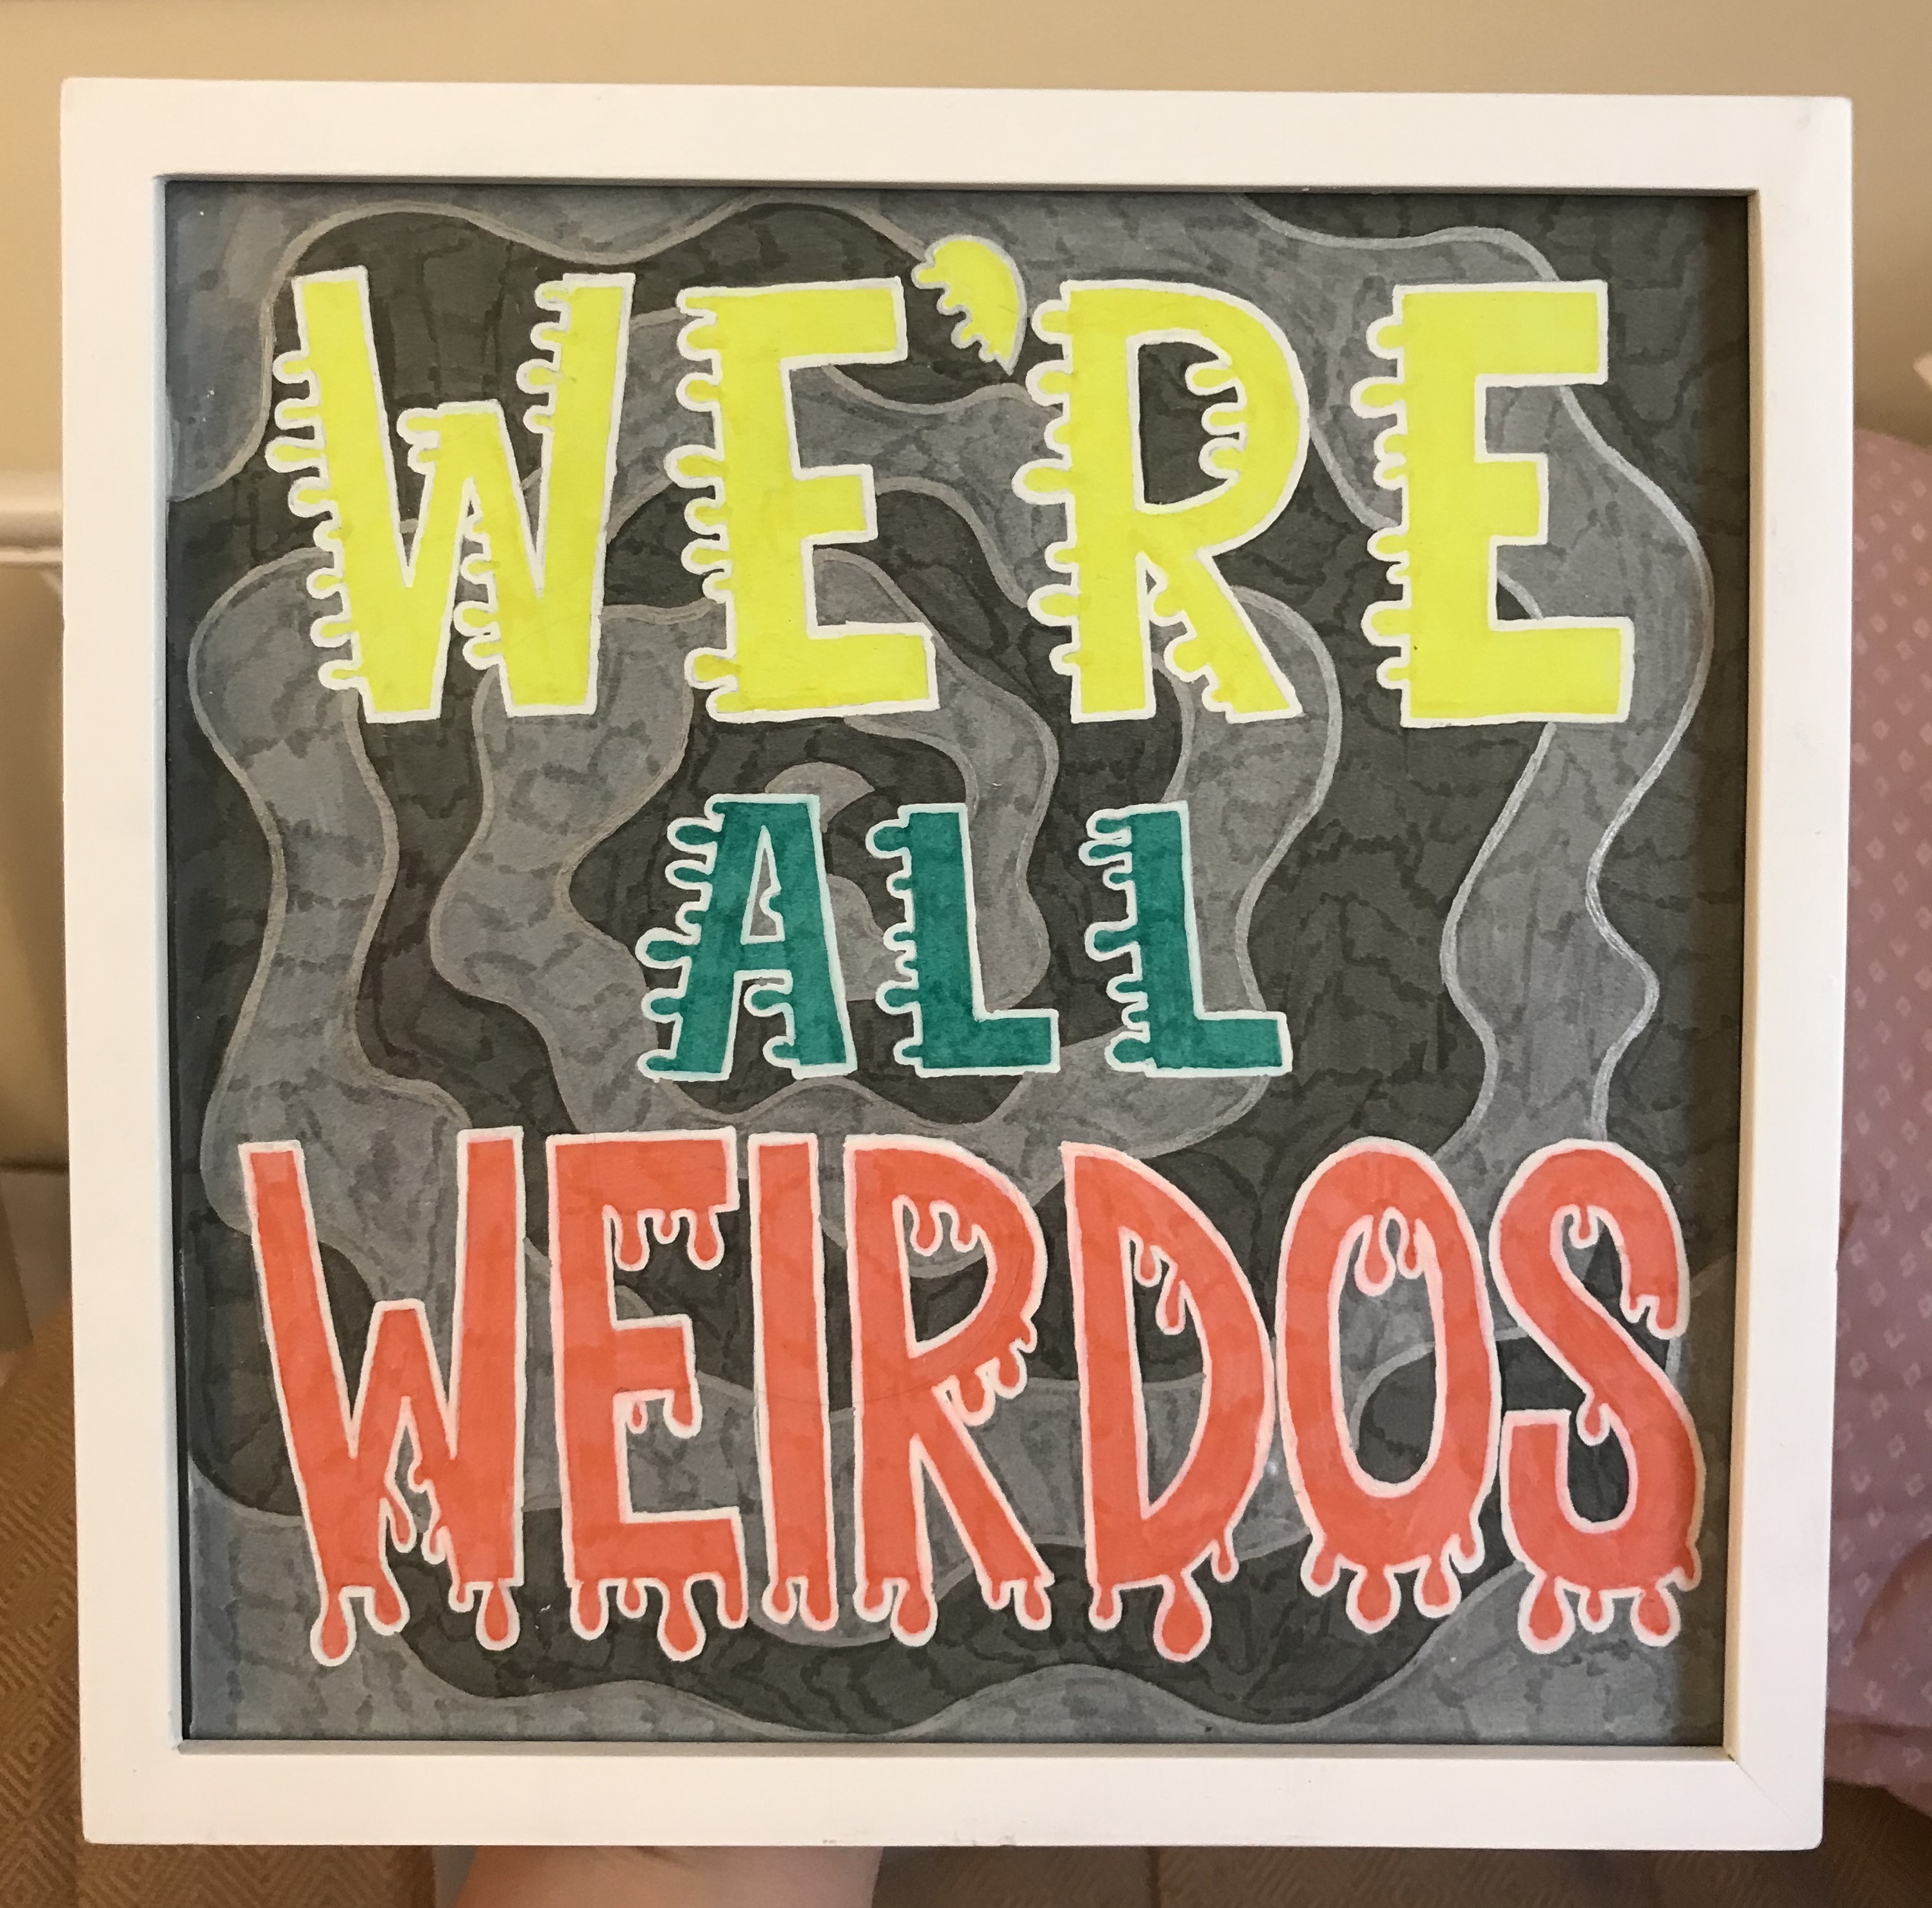 WE'RE
ALL
WEIRDOS